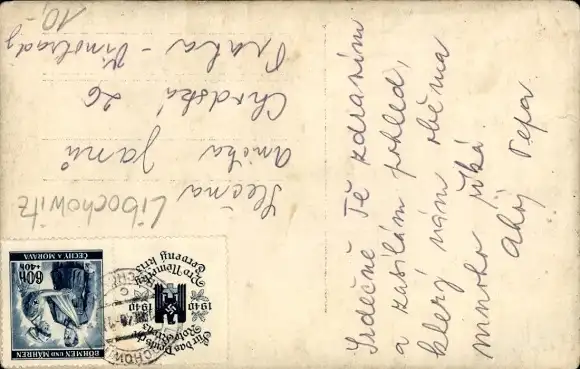 Srdečně Tě zdravím
a zasílám pohled,
který nám oběma
mnoho říká.
Ahoj Pepa
Slečna
Anička Janů
Chodská 26
Praha - Vinohrady
Libochowitz
10,-
ČECHY A MORAVA
60h
+40h
BÖHMEN UND MÄHREN
Für das Deutsche
Rote Kreuz
1940 1940
Pro Německý
Červený kříž